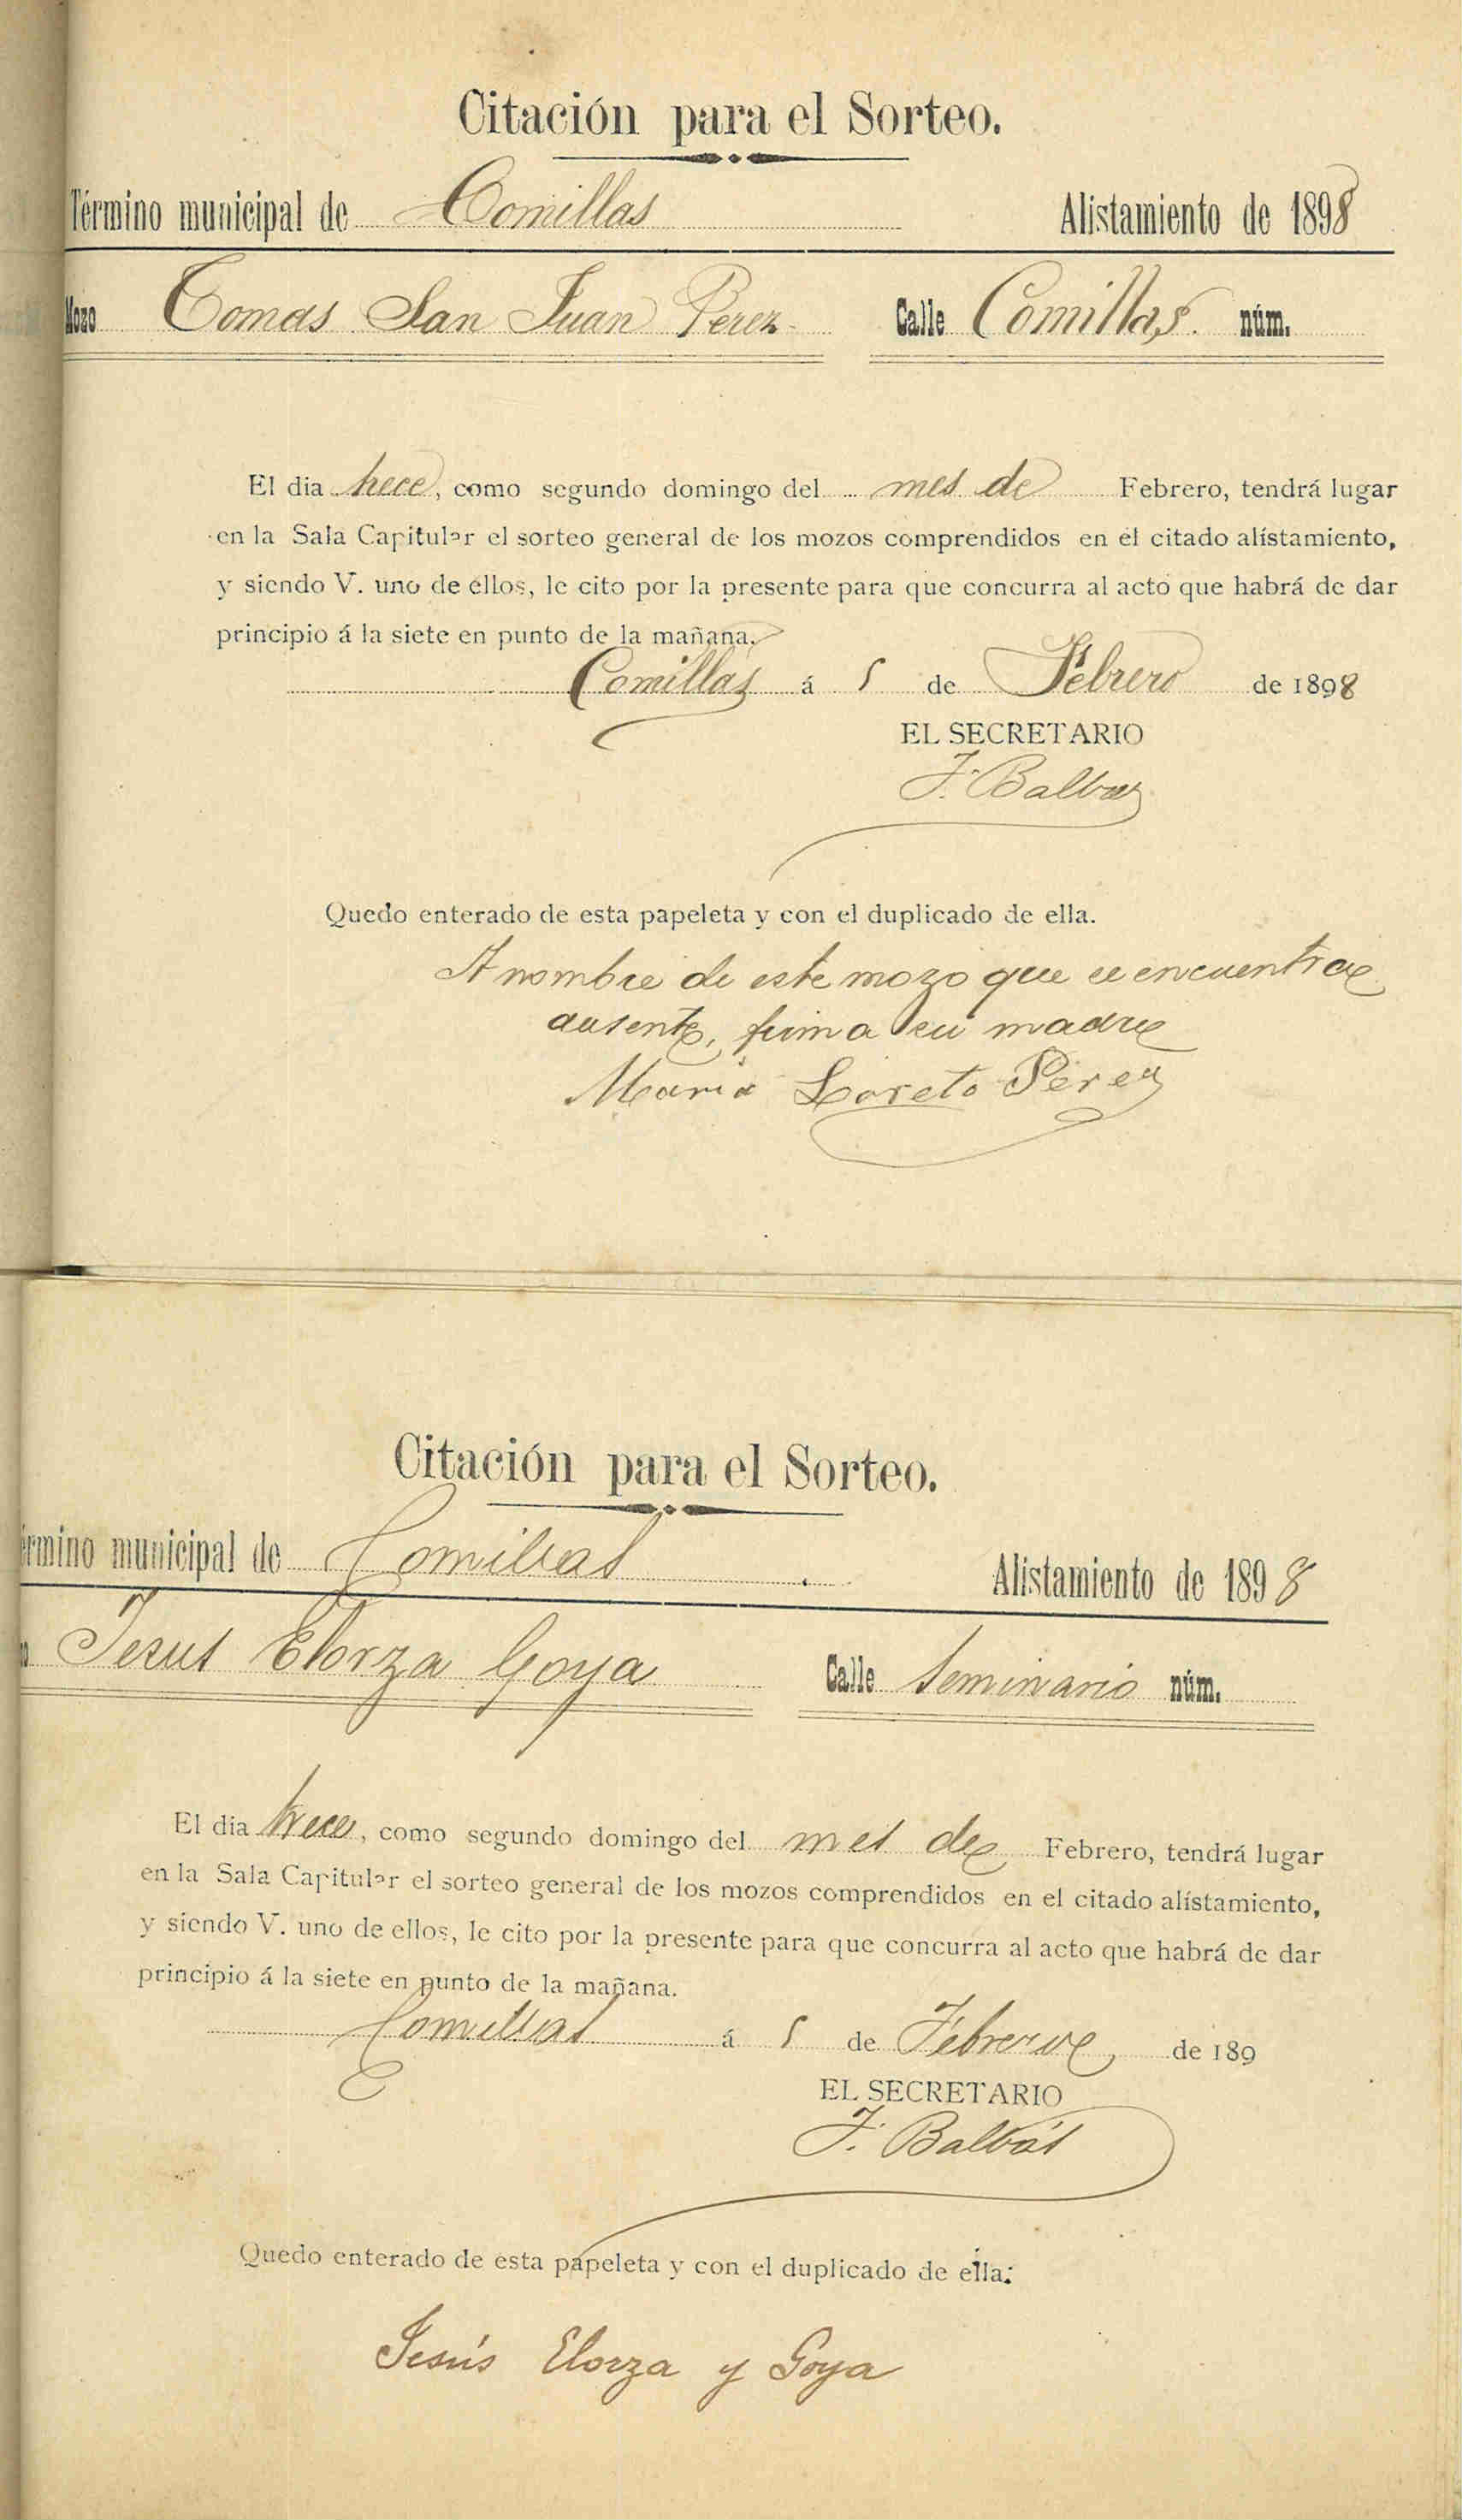 Citación para el Sorteo.
Término municipal de Comillas Alistamiento de 1898
Mozo Tomas San Juan Perez Calle Comillas núm.
El dia trece, como segundo domingo del mes de Febrero, tendrá lugar
en la Sala Capitular el sorteo general de los mozos comprendidos en el citado alistamiento,
y siendo V. uno de ellos, le cito por la presente para que concurra al acto que habrá de dar
principio á la siete en punto de la mañana.
Comillas á 5 de Febrero de 1898
EL SECRETARIO
F. Balbas
Quedo enterado de esta papeleta y con el duplicado de ella.
A nombre de este mozo que se encuentra
ausente, firma su madre
Maria Loreto Perez
Citación para el Sorteo.
érmino municipal de Comillas Alistamiento de 1898
o Jesus Elorza Goya Calle Seminario núm.
El dia trece, como segundo domingo del mes de Febrero, tendrá lugar
en la Sala Capitular el sorteo general de los mozos comprendidos en el citado alistamiento,
y siendo V. uno de ellos, le cito por la presente para que concurra al acto que habrá de dar
principio á la siete en punto de la mañana.
Comillas á 5 de Febrero de 189
EL SECRETARIO
F. Balbás
Quedo enterado de esta papeleta y con el duplicado de ella.
Jesús Elorza y Goya